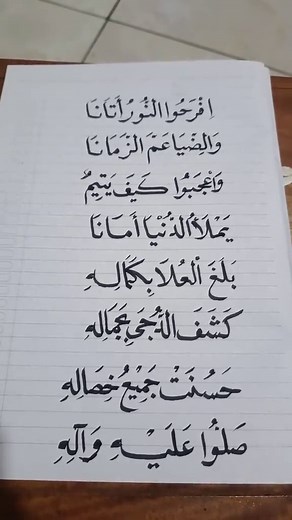 اِفْرَحُوا النُّورُ أَتَانَا
وَالضِّيَا عَمَّ الزَّمَانَا
وَاعْجَبُوا كَيْفَ يَتِيمٌ
يَمْلَأُ الدُّنْيَا أَمَانَا
بَلَغَ الْعُلَا بِكَمَالِهِ
كَشَفَ الدُّجَى بِجَمَالِهِ
حَسُنَتْ جَمِيْعُ خِصَالِهِ
صَلُّوا عَلَيْهِ وَآلِهِ